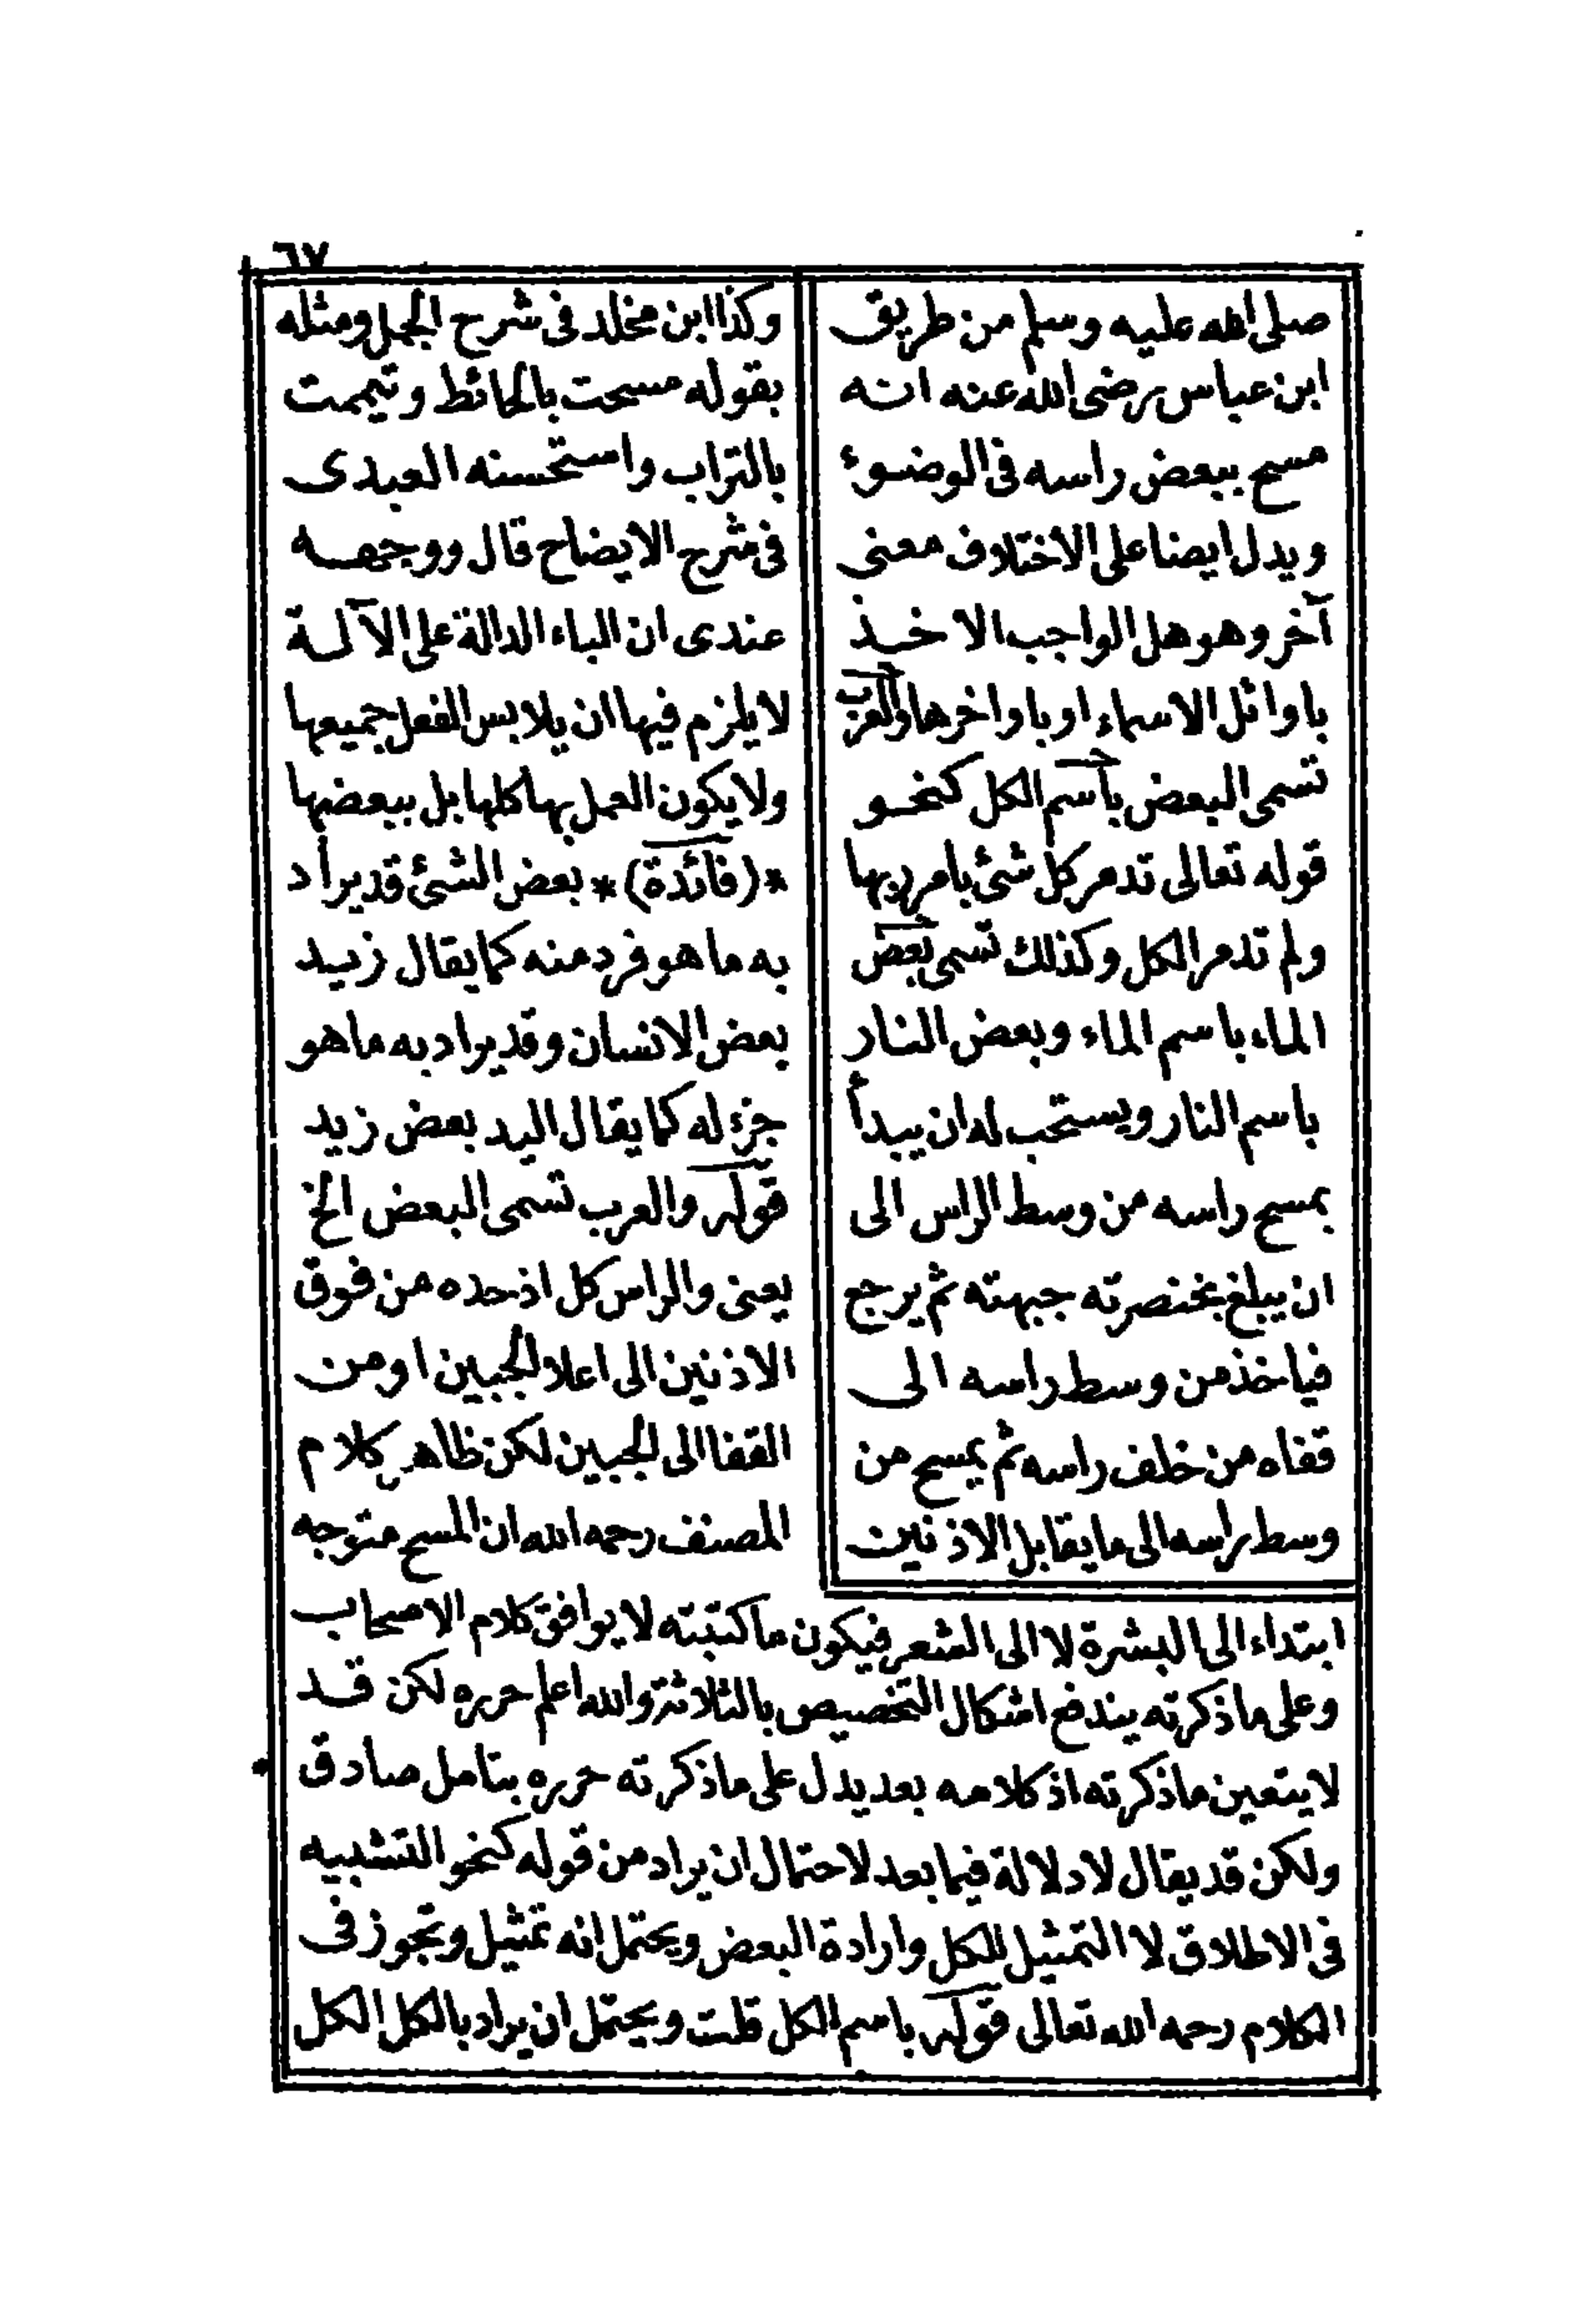 ٦٧
صلى الله عليه وسلم من طريق
ابن عباس رضى الله عنه انه
مسح ببعض راسه فى الوضوء
ويدل ايضا على الاختلاف معنى
آخر وهو هل الواجب الاخذ
باوائل الاسماء او باواخرها والعرب
تسمى البعض باسم الكل كنحو
قوله تعالى تدمر كل شئ بامر ربها
ولم تدمر الكل وكذلك تسمى بعض
الماء باسم الماء وبعض النار
باسم النار ويستحب له ان يبدأ
بمسح راسه من وسط الراس الى
ان يبلغ بخنصرته جبهته ثم يرجع
فياخذ من وسط راسه الى
قفاه من خلف راسه ثم يمسح من
وسط راسه الى ما يقابل الاذنين
وكذا ابن مخلد فى شرح الجمل ومثله
بقوله مسحت بالحائط وتيممت
بالتراب واستحسنه العبدى
فى شرح الايضاح قال ووجهه
عندى ان الباء الدالة على الآلة
لا يلزم فيها ان يلابس الفعل جميعها
ولا يكون العمل بها كلها بل ببعضها
*(فائدة)* بعض الشئ قد يراد
به ما هو فرد منه كما يقال زيد
بعض الانسان وقد يراد به ما هو
جزء له كما يقال اليد بعض زيد
قوله والعرب تسمى البعض الخ
يعنى والراس كل اذ حده من فوق
الاذنين الى اعلا الجبين او من
القفا الى الجبين لكن ظاهر كلام
المصنف رحمه الله ان المسح متوجه
ابتداء الى البشرة لا الى الشعر فيكون ما كتبته لا يوافق كلام الاصحاب
وعلى ما ذكرته يندفع اشكال التخصيص بالثلاثة والله اعلم حرره لكن قد
لا يتعين ما ذكرته اذ كلامه بعد يدل على ما ذكرته حرره بتامل صادق
ولكن قد يقال لا دلالة فيما بعد لاحتمال ان يراد من قوله كنحو التشبيه
فى الاطلاق لا التمثيل للكل وارادة البعض ويحتمل انه تمثيل وتجوز فى
الكلام رحمه الله تعالى قوله باسم الكل قلت ويحتمل ان يراد بالكل الكل